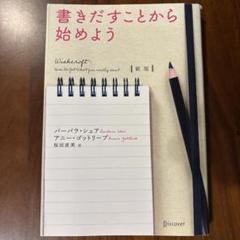 書きだすことから
始めよう
【新版】
Wishcraft
How to Get What you really want
バーバラ・シェア Barbara Sher
アニー・ゴットリーブ Annie Gottlieb
桜田直美 訳
Discover